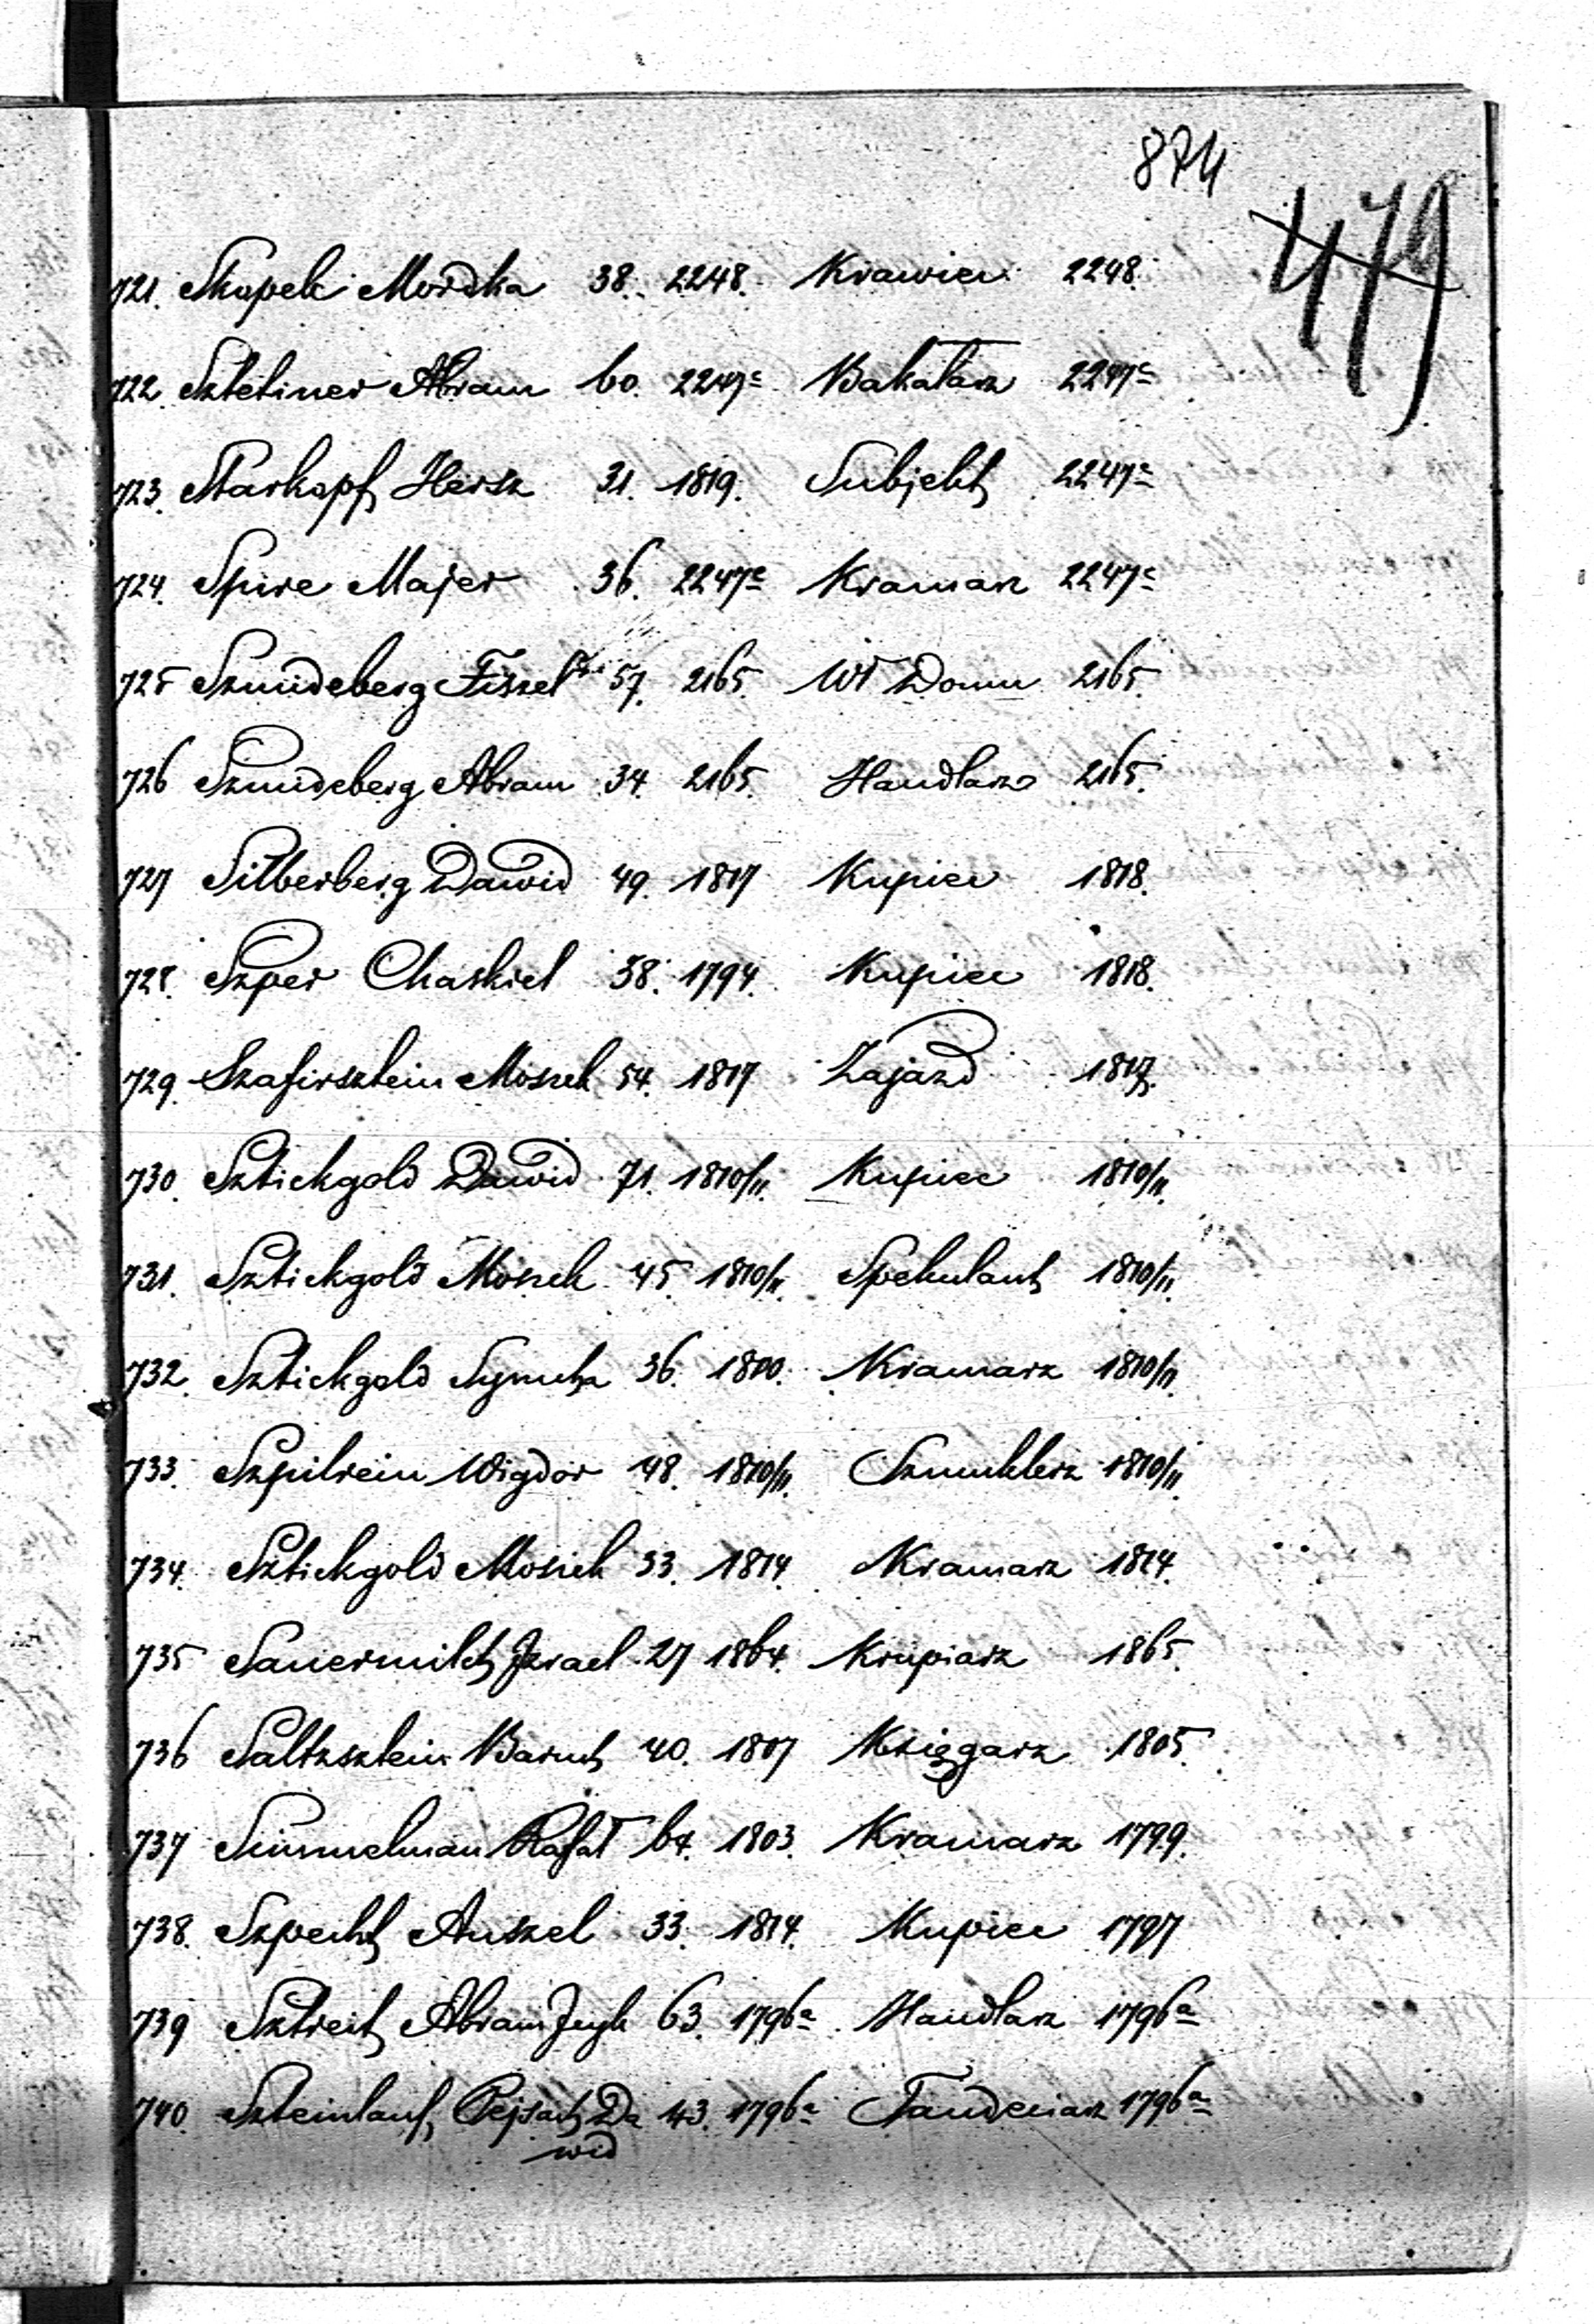 874
479
721. Skopek Mordka 38. 2248. Krawiec 2248.
722. Sztetiner Abram 60. 2247c Bakałarz 2247c
723. Starkopf Hersz 31. 1819. Subjekt 2247c
724. Spire Majer 36. 2247c Kramarz 2247c
725 Szmideberg Fiszel 57. 2165. Wł Domu 2165.
726 Szmideberg Abram 34. 2165. Handlarz 2165.
727 Silberberg Dawid 49. 1817 Kupiec 1818.
728. Szper Chaskiel 38. 1794. Kupiec 1818.
729. Szafirsztein Moszek 54. 1817 Zajazd 1817.
730. Sztickgold Dawid 71. 1810/11. Kupiec 1810/11.
731. Sztickgold Moszek 45. 1810/11. Spekulant 1810/11.
732. Sztickgold Symcha 36. 1800. Kramarz 1810/11.
733. Szpilrein Wigdor 48. 1810/11. Szmuklerz 1810/11.
734. Sztickgold Mosiek 33. 1814. Kramarz 1814.
735 Sauermilch Izrael 27 1864. Krupiarz 1865.
736 Saltzsztein Baruch 40. 1807 Księgarz 1805.
737 Simmelman Rafał 64. 1803. Kramarz 1799.
738. Szpecht Anszel 33. 1814. Kupiec 1797
739 Sztreit Abram Jcyk 63. 1796a Handlarz 1796a
740. Szteinlauf Pejsach Da 43. 1796a Tandeciarz 1796a
wid